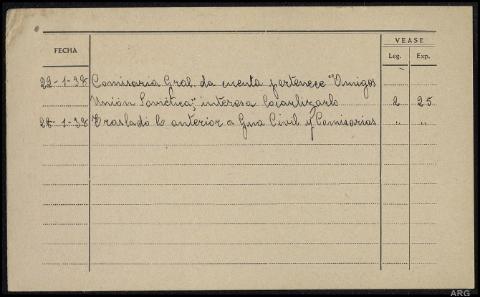 VEASE
FECHA Leg. Exp.
22-1-38 Comisaria Gral. da cuenta pertenece "Amigos
Unión Soviética", interesa localizarlo 2 25
28-1-38 Traslado lo anterior a Gua Civil y Comisarias " "
ARG